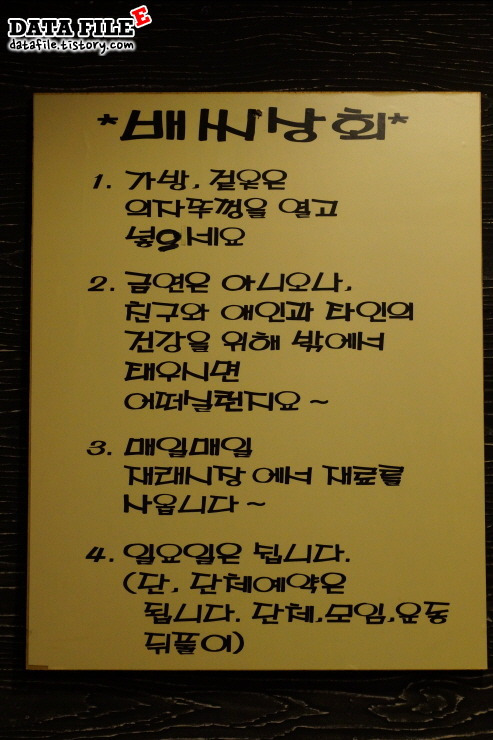 DATA FILE E
datafile.tistory.com
*배씨상회*
1. 가방, 겉옷은
의자뚜껑을 열고
넣으세요
2. 금연은 아니오나,
친구와 애인과 타인의
건강을 위해 밖에서
태우시면
어떠실런지요~
3. 매일매일
재래시장에서 재료를
사옵니다~
4. 일요일은 쉽니다.
(단, 단체예약은
됩니다. 단체,모임,운동
뒤풀이)